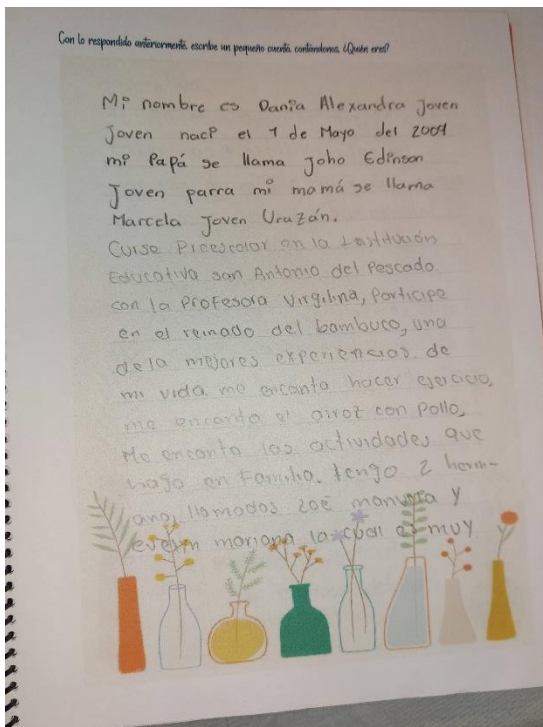 Con lo respondido anteriormente, escribe un pequeño cuento contándonos, ¿Quién eres?
Mi nombre es Dania Alexandra Joven
Joven naci el 1 de Mayo del 2009
mi Papá se llama Joho Edinson
Joven parra mi mamá se llama
Marcela Joven Uruzán.
Curse Preescolar en la Institución
Educativa san Antonio del Pescado
con la Profesora Virgilina, Participe
en el reinado del bambuco, una
dela mejores experiencias de
mi vida me encanta hacer ejercicio,
me encanta el arroz con pollo,
Me encanta las actividades que
hago en Familia. tengo 2 herm-
anas llamados zoe manuela y
evelyn mariana la cual es muy